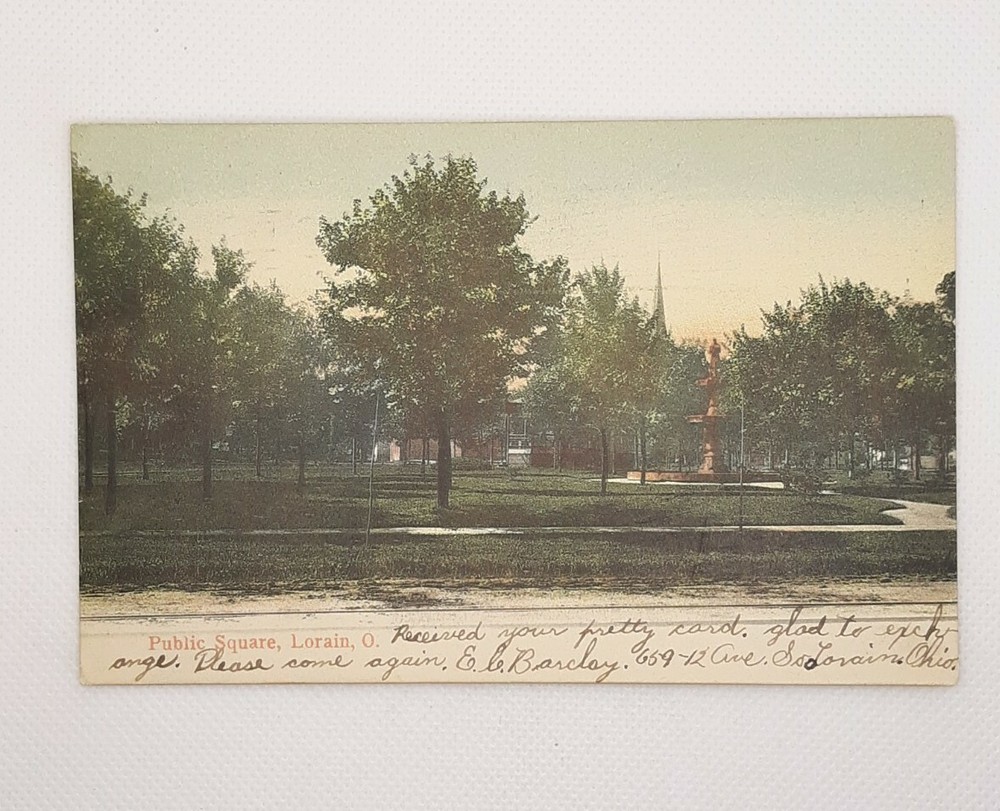 Public Square, Lorain, O. Received your pretty card. glad to exch-
ange. Please come again. E. C. Barclay. 659-12 Ave. So Lorain. Ohio.